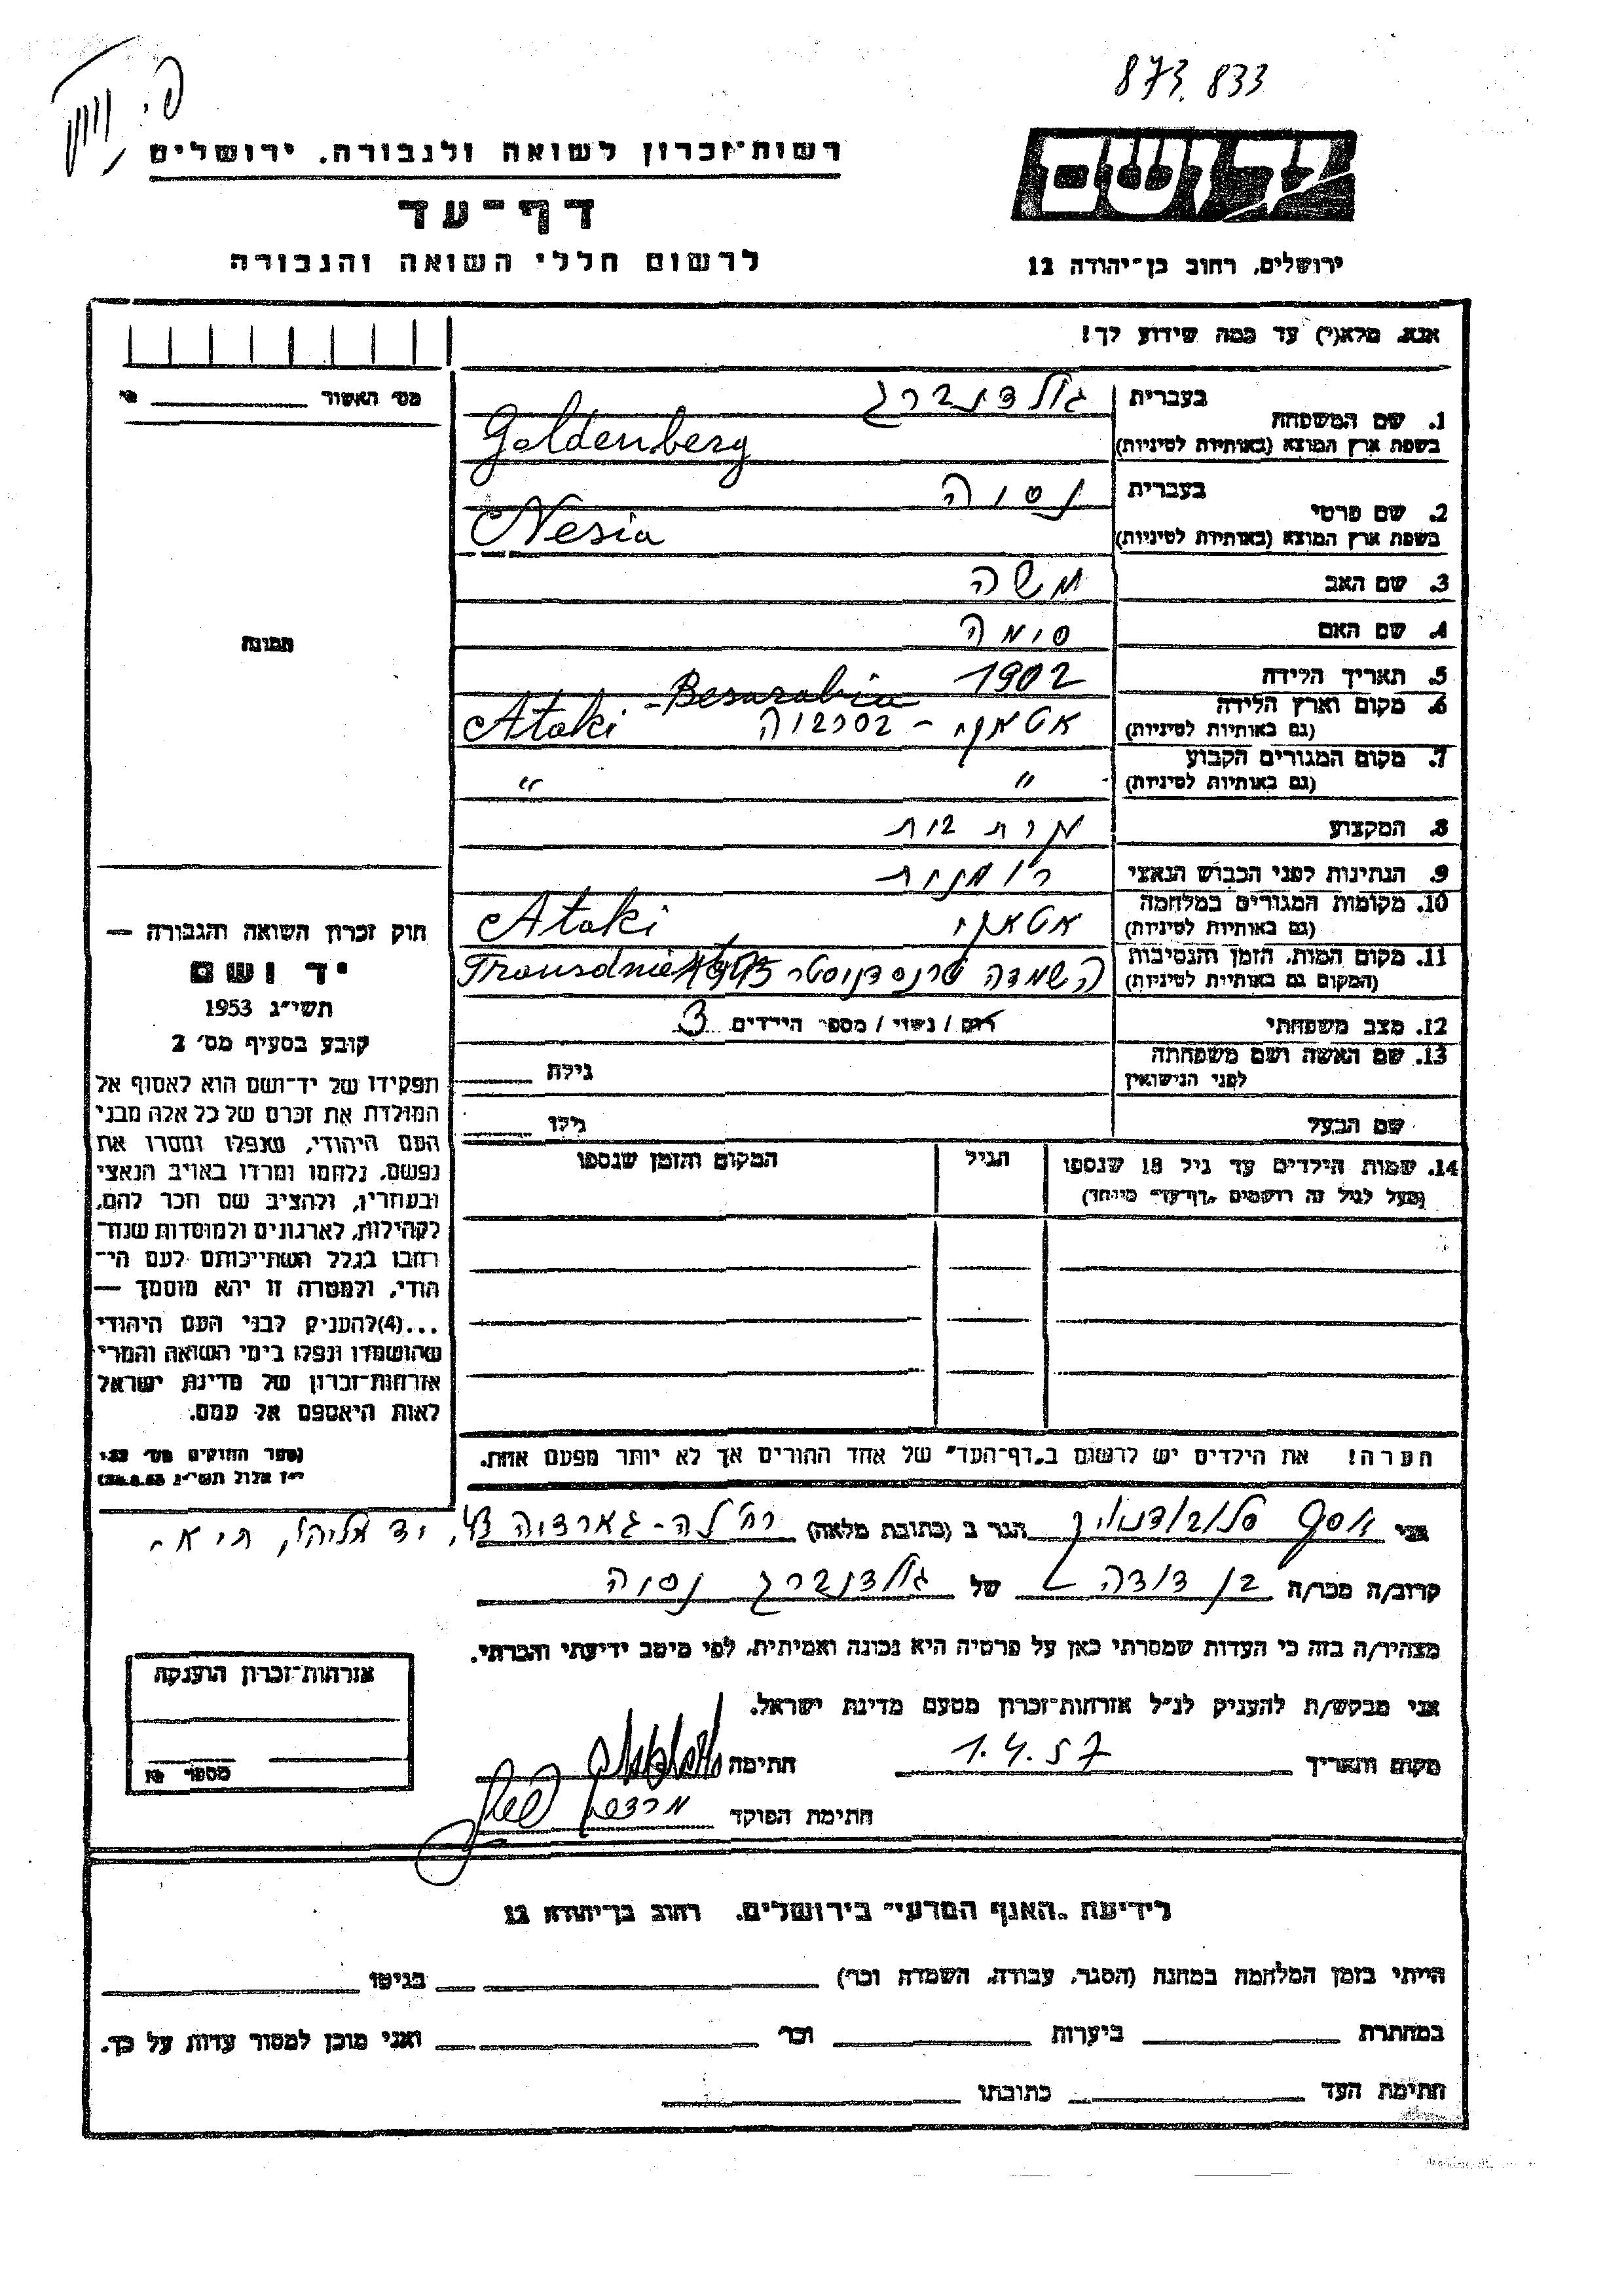 873,833
רשות־זכרון לשואה ולגבורה, ירושלים
דף־עד
לרשום חללי השואה והגבורה
יד ושם
ירושלים, רחוב בן־יהודה 12
אנא, מלא(י) עד כמה שידוע לך!
מס׳ האשור
1. שם המשפחה בעברית גולדנברג
בשפת ארץ המוצא (באותיות לטיניות) Goldenberg
2. שם פרטי בעברית נסיה
בשפת ארץ המוצא (באותיות לטיניות) Nesia
3. שם האב משה
4. שם האם סימה
5. תאריך הלידה 1902
6. מקום וארץ הלידה (גם באותיות לטיניות) אטאקי - בסרביה Ataki - Besarabia
7. מקום המגורים הקבוע (גם באותיות לטיניות) " "
8. המקצוע עקרת בית
9. הנתינות לפני הכבוש הנאצי רומנית
10. מקומות המגורים במלחמה (גם באותיות לטיניות) אטאקי Ataki
11. מקום המות, הזמן והנסיבות (המקום גם באותיות לטיניות) השמדה טרנסדניסטר
12. מצב משפחתי רווק / נשוי / מספר הילדים 3
13. שם האשה ושם משפחתה לפני הנישואין גילה
שם הבעל גילו
14. שמות הילדים עד גיל 18 שנספו הגיל המקום והזמן שנספו
(מעל לגיל זה רושמים „דף־עד" מיוחד)
הערה! את הילדים יש לרשום ב„דף־העד" של אחד ההורים אך לא יותר מפעם אחת.
תמונה
חוק זכרון השואה והגבורה —
יד ושם
תשי״ג 1953
קובע בסעיף מס׳ 2
תפקידו של יד־ושם הוא לאסוף אל
המולדת את זכרם של כל אלה מבני
העם היהודי, שנפלו ומסרו את
נפשם, נלחמו ומרדו באויב הנאצי
ובעוזריו, ולהציב שם וזכר להם,
לקהילות, לארגונים ולמוסדות שנח־
רבו בגלל השתייכותם לעם הי־
הודי, ולמטרה זו יהא מוסמך —
...(4)להעניק לבני העם היהודי
שהושמדו ונפלו בימי השואה והמרי
אזרחות־זכרון של מדינת ישראל
לאות היאספם אל עמם.
(ספר החוקים מס׳ 132
י״ז אלול תשי״ג
אני יוסף הגר ב (כתובת מלאה) לה-גארדיה 43, יד אליהו, ת״א
קרוב/ה מכר/ה בן דודה של גולדנברג נסיה
מצהיר/ה בזה כי העדות שמסרתי כאן על פרטיה היא נכונה ואמיתית, לפי מיטב ידיעתי והכרתי.
אני מבקש/ת להעניק לנ״ל אזרחות־זכרון מטעם מדינת ישראל.
מקום ותאריך 1.4.57 חתימה
חתימת הפוקד
אזרחות־זכרון הוענקה
מספר
לידיעת „האגף המדעי" בירושלים, רחוב בן־יהודה 12
הייתי בזמן המלחמה במחנה (הסגר, עבודה, השמדה וכו׳) בגיטו
במחתרת ביערות וכו׳ ואני מוכן למסור עדות על כך.
חתימת העד כתובתו